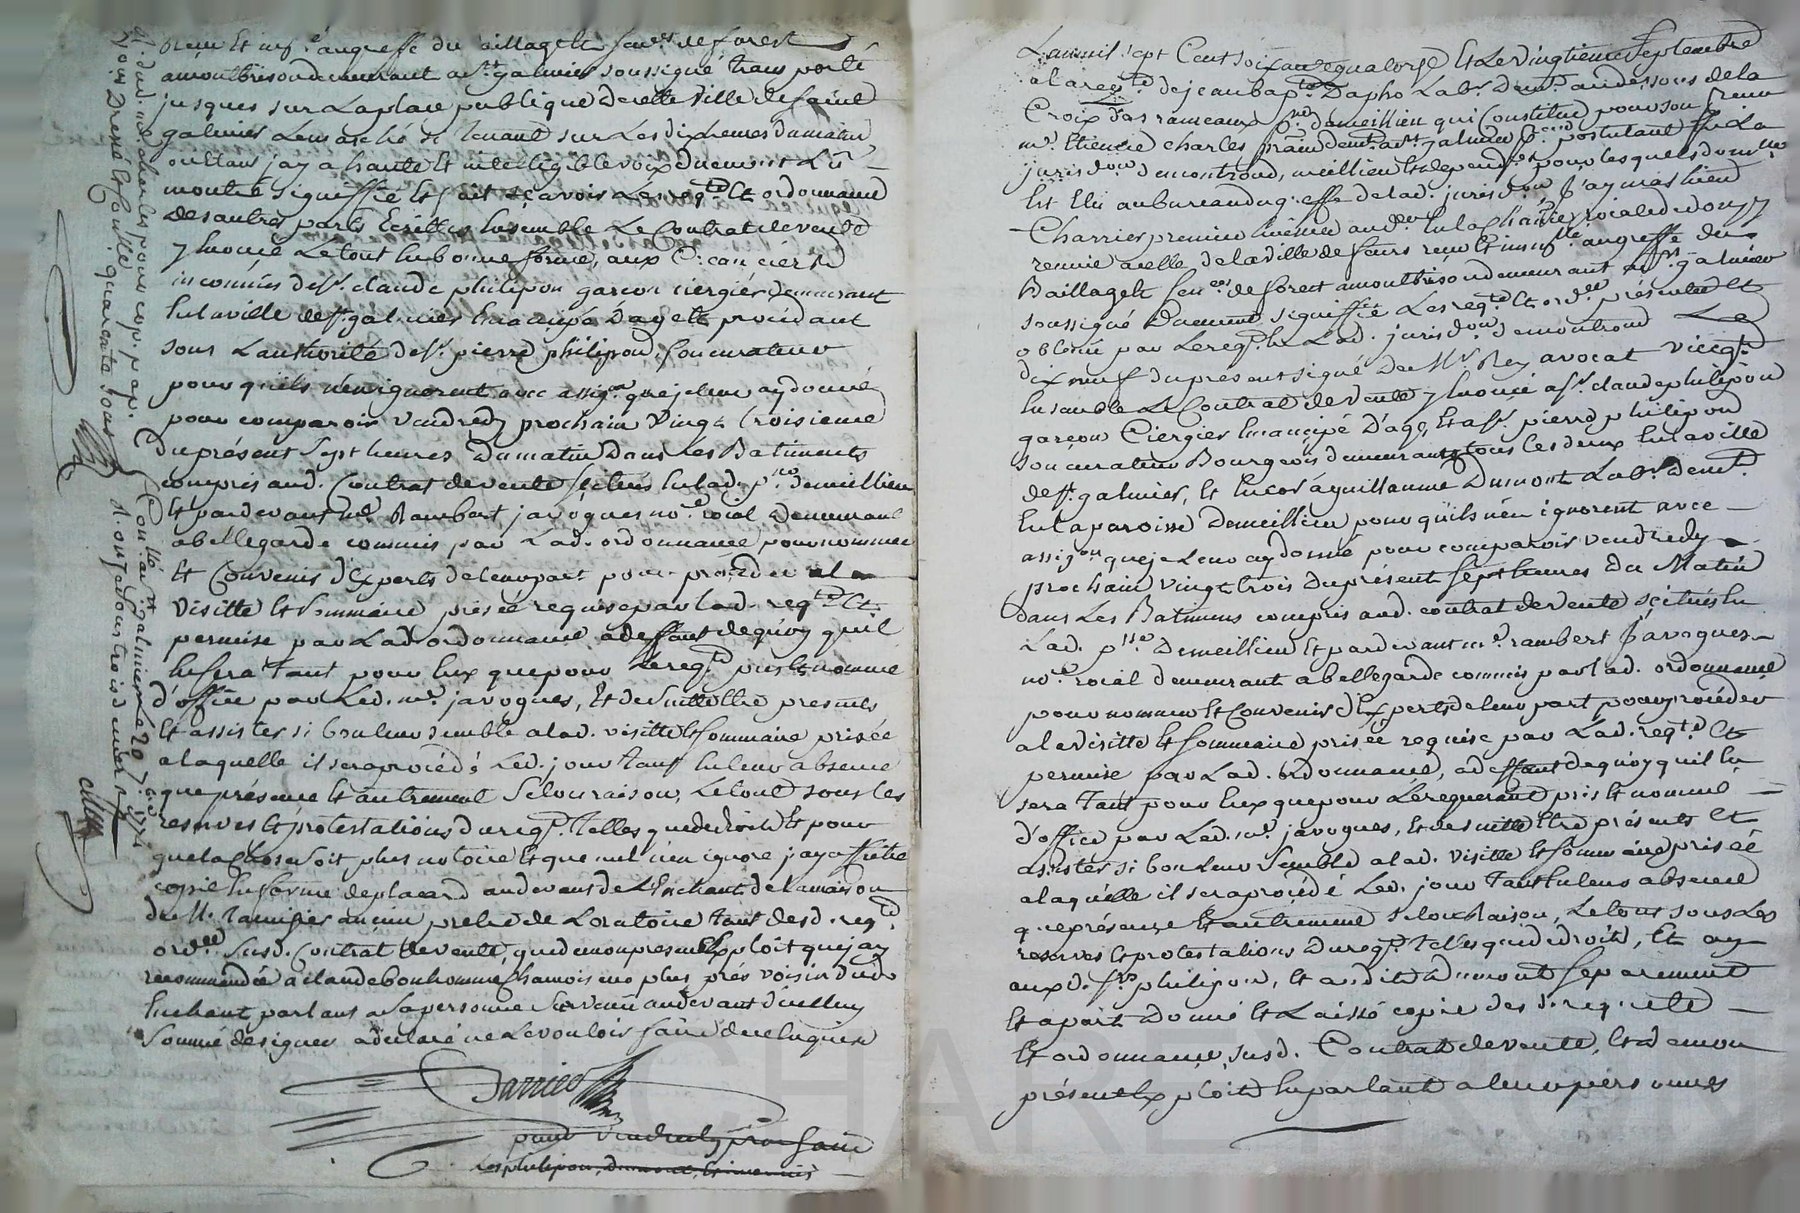 reçu et inse. au greffe du bailliage et senes. de forest
a montbrison demeurant a st. galmier soussigné transporté
jusques sur la place publique de cette ville de saint
galmier le marché se tenant sur les dix heures du matin
ou etans jay a haute et intelligible voix
montré signiffié et fait sçavoir la reqte. et ordonnance
des autres parts Ecrittes Ensemble le Contrat de vente
y Enoncé le tout En bonne forme, aux C: can ciers
inconnus de sr. claude philipon garçon ciergier demeurant
En la ville de st. galmier Emancipé D'age et procedant
sous L'authorité de sr. pierre philipon, son curateur
pour quils n'en ignorent avec assigon. que je leur ay donné
pour comparoir vendredy prochain vingt troisieme
du présent sept heures Du matin Dans Les Batiments
compris aud. Contrat de vente scitués En lad. psse. de meillieu
Et pardevant me. Rambert javogues nore. roial Demeurant
a bellegarde commis par Lad. ordonnance pour nommer
Et Convenir d'Experts de leur part pour proceder a la
visitte Et Sommaire prisée requise par lad. reqte. Et
permise par Lad. ordonnance a deffaut de quoy quil
En sera tant pour Eux que pour Le reqt. pris Et nommé
d'office par Led. me. javogues, Et de suitte Etre presents
Et assister si bon leur semble a lad. visitte Et Sommaire prisée
a laquelle il sera procédé Led. jour tant En leur absence
que présence Et autrement Selon raison, Le tout sous les
reserves Et protestations du reqt. telles que de droit Et pour
que la chose soit plus notoire Et que nul n'en ignore jay affiché
copie En forme de placard au devant de L'Enchant de la maison
du Sr. ancien pretre de Loratoire tant des d. reqte.
ordce. Susd. Contrat de vente, que de mon present Exploit que jay
recommandée a claude bonhomme Chamoiseur plus près voisin dud.
Enchant parlant a sa personne survenue au devant d'icelluy
Sommé de signer a declaré ne Le vouloir faire de ce Enquis
Charrier
pour vendredy prochain
Les philipon, Dumont, Et
et dud. me. charles pour cop. pap.
Dressé Et fouille quarante sous
Conllé a st. galmier Le 20 7bre. 1774
R. onze sous trois deniers
L'an mil sept Cent soixante quatorze Et Le vingtieme septembre
a la reqte. de jean bapte. Dapho Labr. Demt. au dessous de la
Croix des rameaux psse. de meillieu qui Constitue pour son procur
me. Etienne charles pram demt. a st. galmier pr. postulant En La
jurisdon. de montrond, meillieu Et dependces. pour lesquels domlle.
Est Elu au bureau du greffe de lad. jurisdon. j'ay mathieu
Charrier premier huissier audr. En la Chatnie. roiale de donzy
reunie a celle de la ville de feurs reçu Et inse. au greffe du
Bailliage Et senes. de forest a montbrison demeurant a st. galmier
soussigné Dument signiffié Les reqte. Et ordce. présentée Et
obtenue par Le reqt. En Lad. jurisdon. de montrond Le
dix neuf du present signé De Mr. Rey avocat vicegt.
Ensemble Le Contrat de vente y Enoncé a sr. claude philipon
garçon Ciergier Emancipé D'age, Et a sr. pierre philipon
son curateur Bourgeois demeurants tous les deux En la ville
de st. galmier, Et Encor a guillaume Dumont Labr. demt.
En la paroisse de meillieu pour quils n'en ignorent avec
assigon. que je Leur ay donné pour comparoir vendredy
prochain vingt trois du présent sept heures du Matin
dans Les Batimens compris aud. contrat de vente scitués En
Lad. psse. De meillieu Et pardevant me. rambert Javogues
nore. roial demeurant a bellegarde commis par lad. ordonnance
pour nommer Et Convenir d'Experts de leur part pour proceder
a la visitte Et Sommaire prisée requise par Lad. reqte. Et
permise par Lad. ordonnance, a deffaut de quoy quil En
sera tant pour Eux que pour Le requerant pris Et nommé
d'office par Led. me. javogues, Et de suitte Etre présents Et
assister si bon Leur Semble a lad. visitte Et sommaire prisée
a laquelle il sera procédé Led. jour tant En leur absence
que présence Et autrement Selon Raison, Le tout sous Les
reserves Et protestations du reqt. telles que de droit, Et ay
aux d. srs. philipon, Et audit Dumont separement
Et a part Donné Et Laissé copie des d. requete
Et ordonnance, susd. Contrat de vente, Et de mon
présent Exploit En parlant a leurs personnes